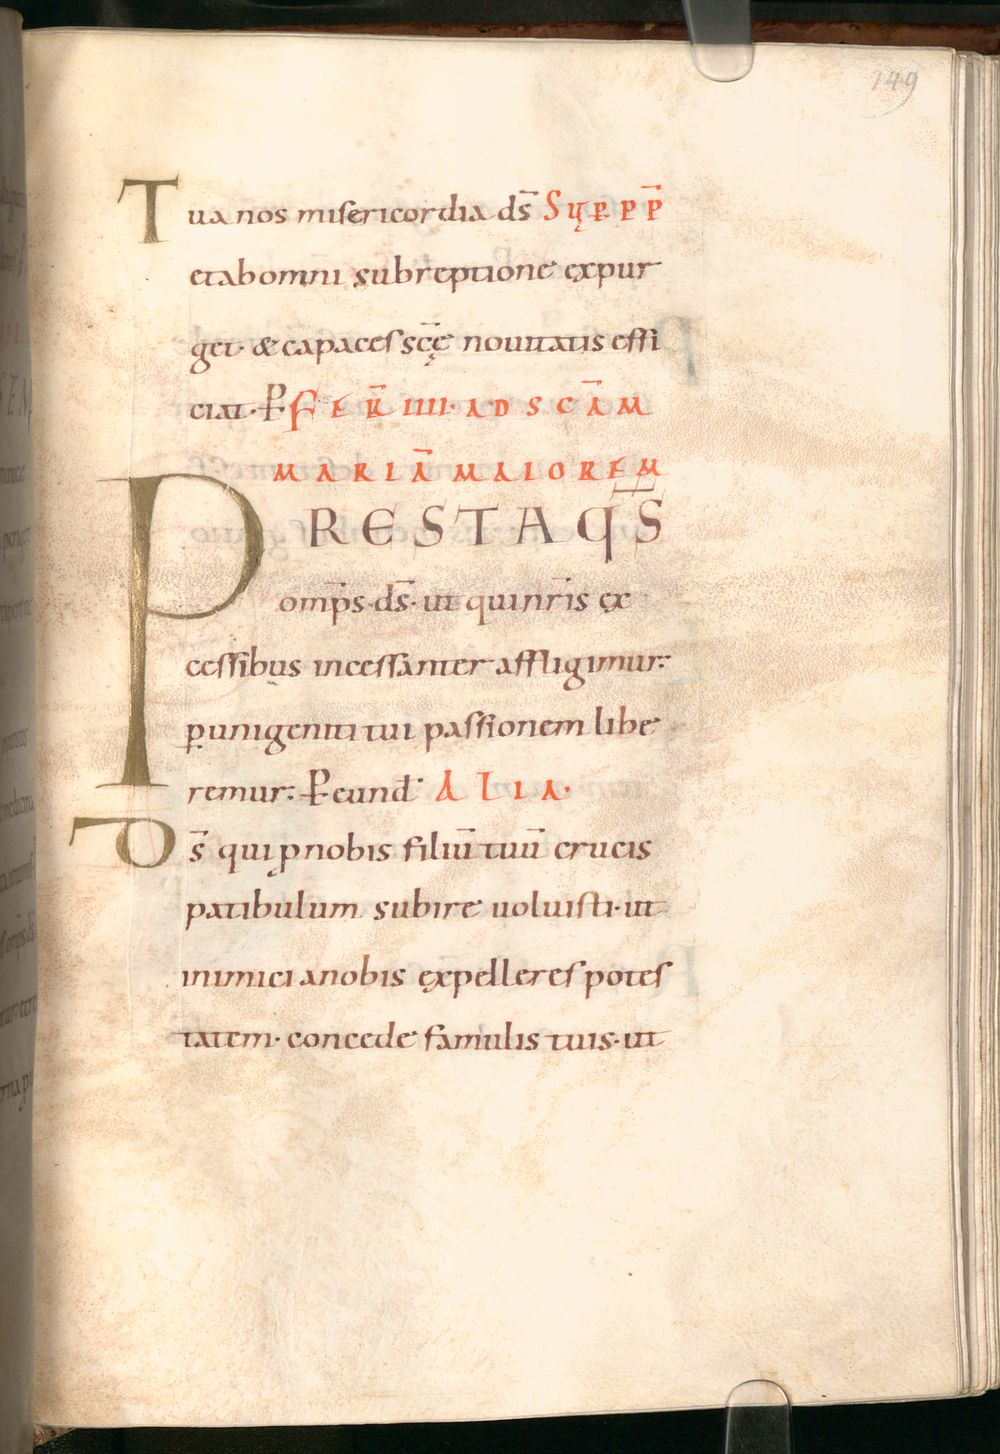 149
Tua nos misericordia ds̄ Sup̱ p̱ p̄
etabomni subreptione expur
get· & capaces sc̄ę nouitatis effi
ciat· ꝑ FER̄ IIII· AD SCĀM
MARIĀ MAIOREM
PRESTA QS̄
omp̄s· ds̄· ut quinr̄is ex
cessibus incessanter affligimur:
ꝑ unigeniti tui passionem libe
remur: ꝑ eund̄ ALIA·
Ds̄ qui ꝓ nobis filiū tuū crucis
patibulum subire uoluisti· ut
inimici anobis expelleres potes
tatem· concede famulis tuis· ut